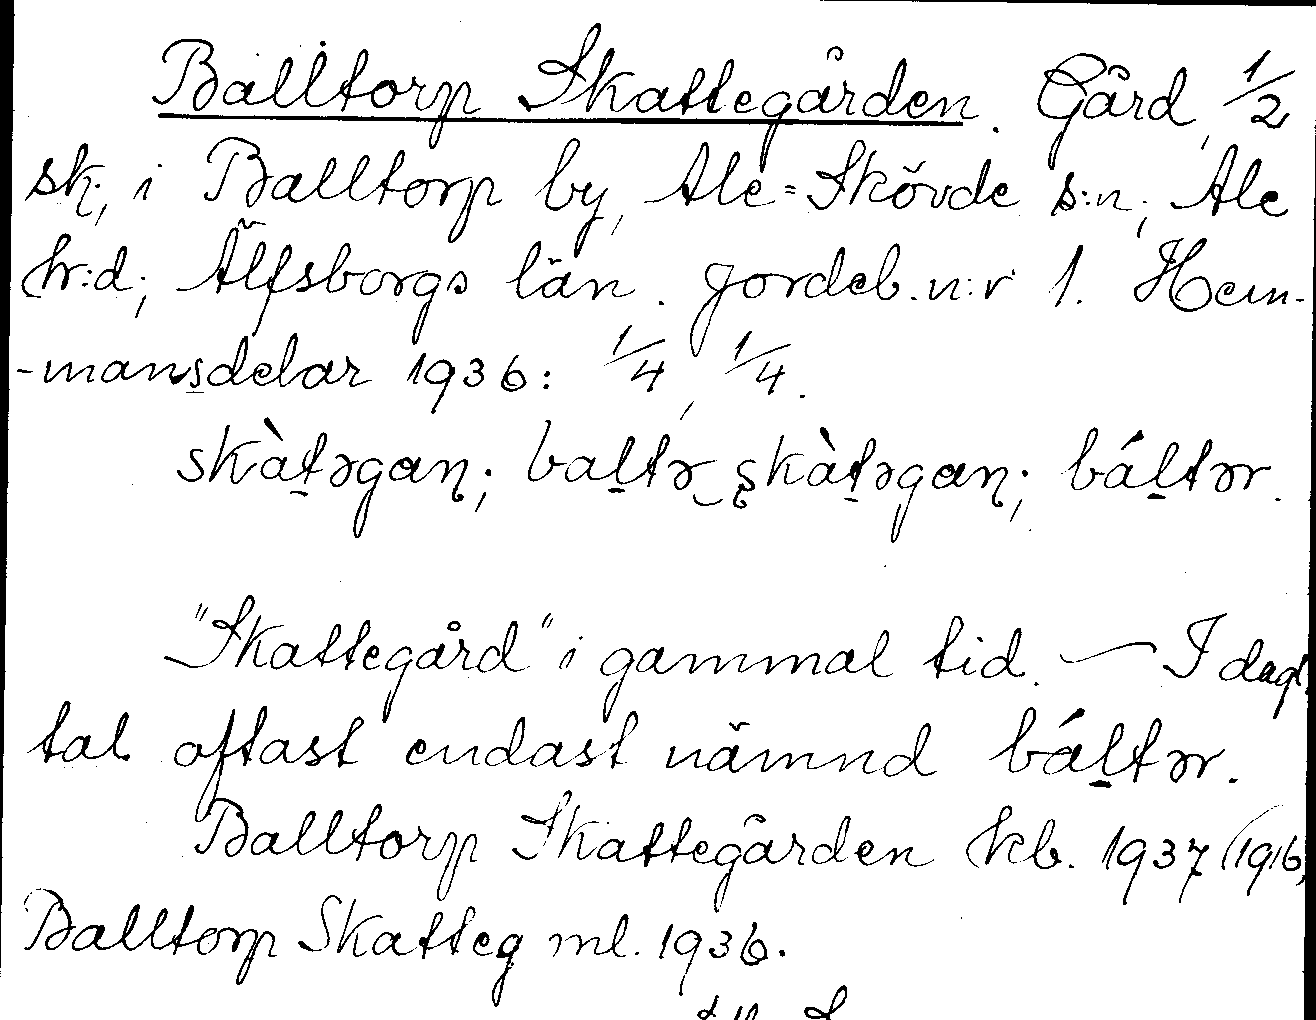 Balltorp Skattegården. Gård, 1/2
sk., i Balltorp by, Ale-Skövde s:n, Ale
hr:d; Älfsborgs län. Jordeb.n:r 1. Hem-
-mansdelar 1936: 1/4, 1/4.
skàt̠əgaɳ; bal̠tə‿ʂkàt̠əgaɳ; bál̠tər.
"Skattegård" i gammal tid. — I dagl.
tal oftast endast nämnd bál̠tər.
Balltorp Skattegården kb. 1937 (1916,
Balltorp Skatteg ml. 1936.